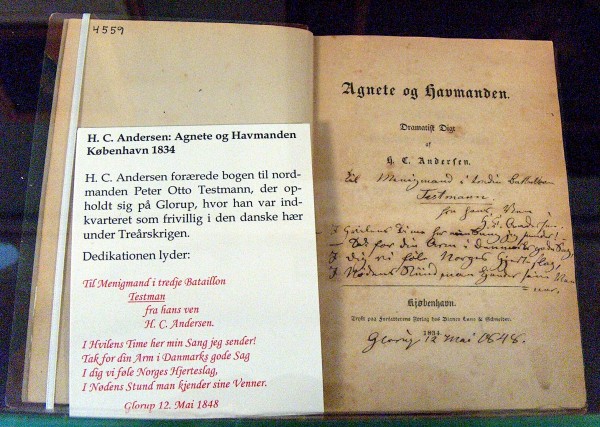 4559
H. C. Andersen: Agnete og Havmanden
København 1834
H. C. Andersen forærede bogen til nord-
manden Peter Otto Testmann, der op-
holdt sig på Glorup, hvor han var ind-
kvarteret som frivillig i den danske hær
under Treårskrigen.
Dedikationen lyder:
Til Menigmand i tredje Bataillon
Testman
fra hans ven
H. C. Andersen.
I Hvilens Time her min Sang jeg sender!
Tak for din Arm i Danmarks gode Sag
I dig vi føle Norges Hjerteslag,
I Nødens Stund man kjender sine Venner.
Glorup 12. Mai 1848
Agnete og Havmanden.
Dramatisk Digt
af
H. C. Andersen.
Til Menigmand i tredie Bataillon
Testmann
fra hans Ven
H. C. Andersen.
I Hvilens Time her min Sang jeg sender!
Tak for din Arm i Danmarks gode Sag,
I Dig vi føle Norges Hjerteslag,
I Nødens Stund man kjender sine Ven-
ner.
Kjøbenhavn.
Trykt paa Forfatterens Forlag hos Bianco Luno & Schneider.
1834.
Glorup 12 Mai 1848.